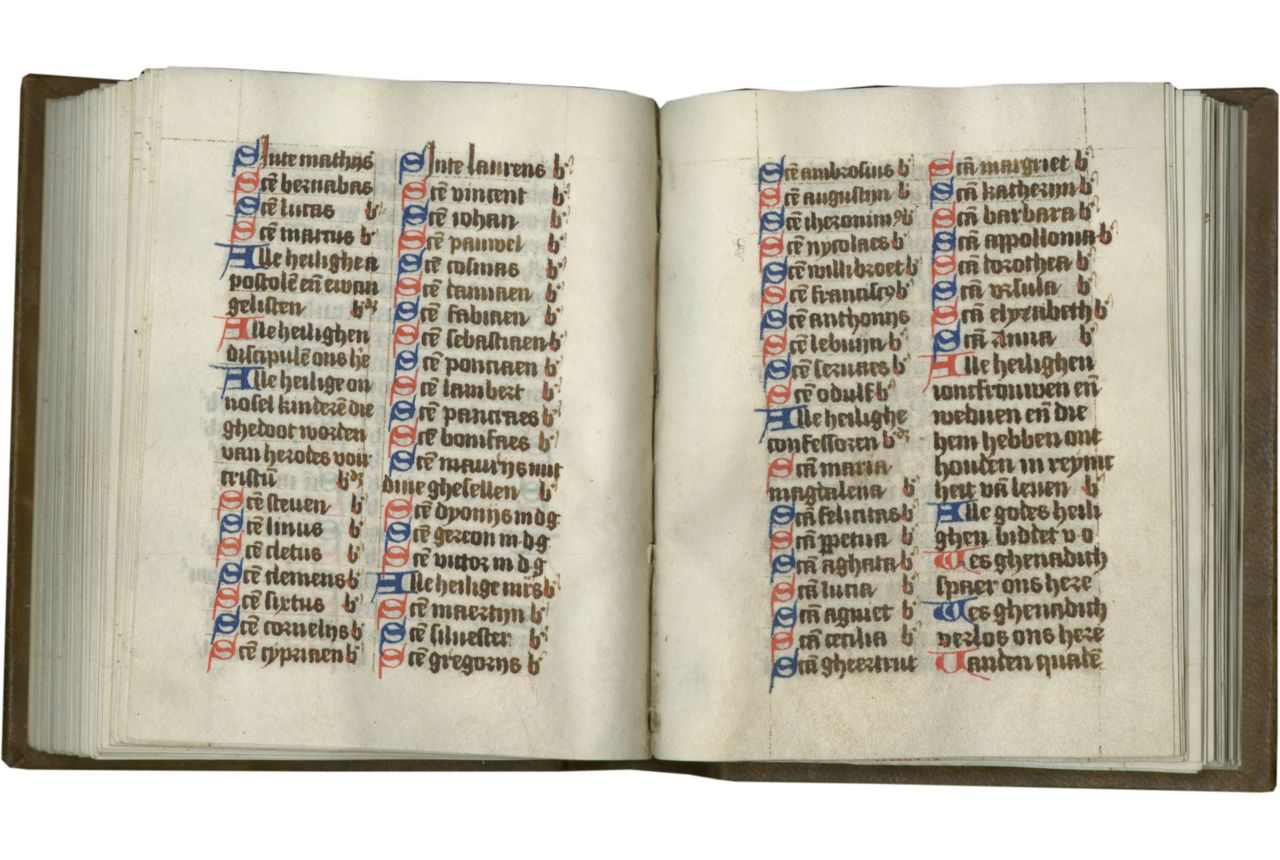 Sinte mathijs
Scē bernabas
Scē lucas b
Scē marcus b
Alle heilighe a
postolē eñ ewan
gelisten b
Alle heilighen
discipulē ons hē
Alle heilige on
nosel kinderē die
ghedoot worden
van herodes voir
cristū b
Scē steuen b
Scē linus b
Scē cletus b
Scē clemens b
Scē sixtus b
Scē cornelijs b
Scē cypriaen b
Sinte laurens b
Scē vincent b
Scē iohan b
Scē pauwel b
Scē cosmas b
Scē damiaen b
Scē fabiaen b
Scē sebastiaen b
Scē ponciaen b
Scē lambert b
Scē pancraes b
Scē bonifaes b
Scē maurijs mit
dine ghesellen b
Scē dyonijs m d g
Scē gereon m d g
Scē victor m d g
Alle heilige mrs b
Scē maertijn b
Scē siluester b
Scē gregorijs b
Scē ambrosius b
Scē augustijn b
Scē iheronimꝰ b
Scē nycolaes b
Scē willibroet b
Scē franciscꝰ b
Scē anthonijs
Scē lebuijn b
Scē seruaes b
Scē odulf b
Alle heilighe
confessoren b
Scā maria
magdalena b
Scā felicitas b
Scā ꝑpetua b
Scā aghata b
Scā lucia b
Scā agniet b
Scā cecilia b
Scā gheertrut
Scā margriet b
Scā katherijn b
Scā barbara b
Scā appollonia b
Scā dorothea b
Scā vrsula b
Scā elyzabeth b
Scā anna b
Alle heilighen
ioncfrouwen eñ
weduen eñ die
hem hebben ont
houden in reynic
heit vā leuen b
Alle godes heili
ghen biddet v o
Wes ghenadich
spaer ons here
Wes ghenadich
verlos ons here
Vanden qualē